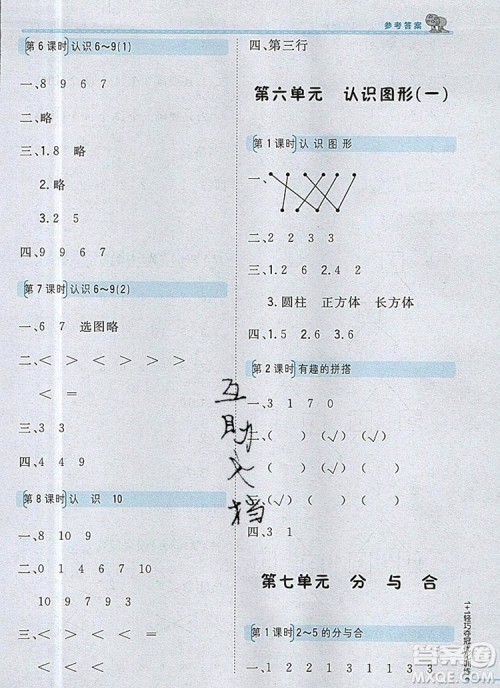 参考答案
第6课时 认识6~9(1)
一、8 9 6 7
二、略
三、1.8 略
2.略
3.2 5
四、9 9 6 7
第7课时 认识6~9(2)
一、6 7 选图略
二、< > < > >
< < < <
三、3 3
四、4 4
第8课时 认 识 10
一、8 10 9
二、0 1 4 6 7 10
9 7 4
三、< < = >
> < > <
四、第三行
第六单元 认识图形(一)
第1课时 认识图形
一、
二、2 2 3 3
三、1.3 1 2 6 2.4 2
3.圆柱 正方体 长方体
四、1.5 2.6 3.6
第2课时 有趣的拼搭
一、3 1 7 0
二、( ) (√) ( ) (√)
(√) ( ) ( ) (√)
三、(√) ( ) (√)
四、3 1
第七单元 分 与 合
第1课时 2~5的分与合
一、1 1 2 2 1 3 1 3 1
互助文档
1+1轻巧夺冠
答案